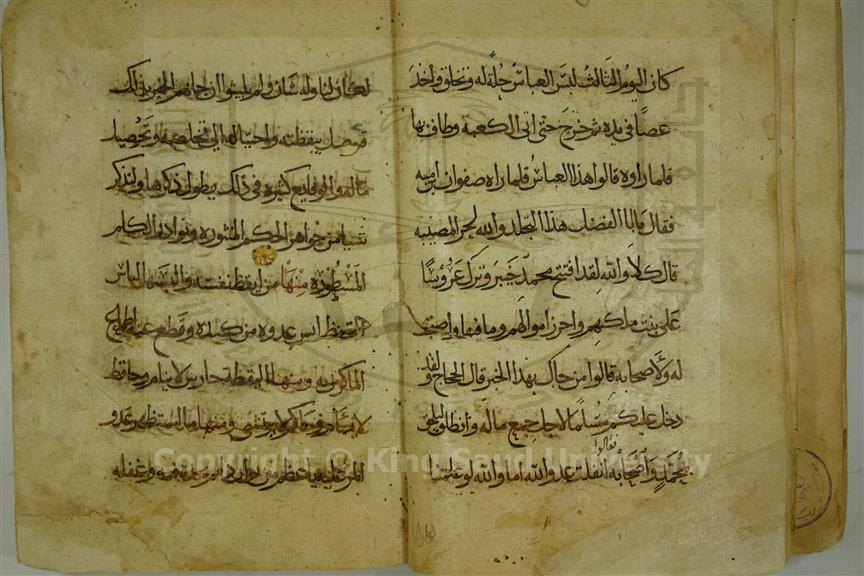 كان اليوم الثالث لبس العباس حُلةً له وتخلق واخذ
عصًا في يده ثم خرج حتى اتى الكعبة وطاف بها
فلما راوه قالوا هذا العباسُ فلما راه صفوان ابن اميه
فقال يا با الفضل هذا التجلد والله لحر المصيبه
قال كلا والله لقد افتتح محمدٌ خيبر وترك عروسًا
على بنت ملكهم واحرز اموالهم وما فيها واصبحت
له ولاصحابه قالوا من جاك بهذا الخبر قال الحجاج ولقد
دخل عليكم مسلما لاجل جمع ماله وانطلق ليلحق
بمحمدٍ واصحابه فقالوا انفلت عدو الله اما والله لو علمنا
لكان لنا وله شان ولم يلبثوا ان جاهم الخبر بذلك
فتوصل بيقظته واحتياله الى وتحصيل
ماله والوقايع كثيره في ذلك يطول ذكرها ولنذكر
شيا من جواهر الحكم المنثوره ونوادر الكلم
المسطوره منها من ايقظ نفسه والبسها لباس
التحفظ ايس عدوه من كيده وقطع عنه اطماع
الماكرين به ومنها اليقظة حارس لا ينام وحافظ
لا وحاكم لا يرتشي ومنها ما استظهر عدو
وغفله
Copyright © King Saud University